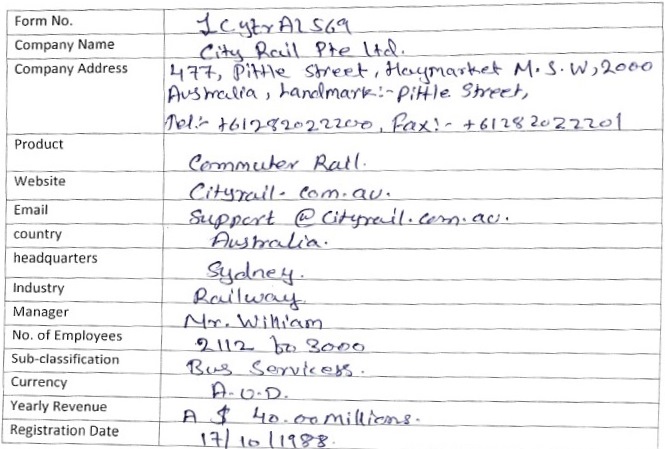 Form No. 1CytrA2569
Company Name City Rail Pte Ltd.
Company Address 477, Pittle Street, Haymarket M.S.W, 2000
Australia, Landmark:- Pittle Street,
Tel:- +61282022200, Fax:- +61282022201
Product Commuter Rail.
Website Cityrail.com.au.
Email Support @ Cityrail.com.au.
country Australia.
headquarters Sydney.
Industry Railway
Manager Mr. William
No. of Employees 2112 to 3000
Sub-classification Bus Servicess.
Currency A.U.D.
Yearly Revenue A $ 40.00 millions.
Registration Date 17/10/1988.